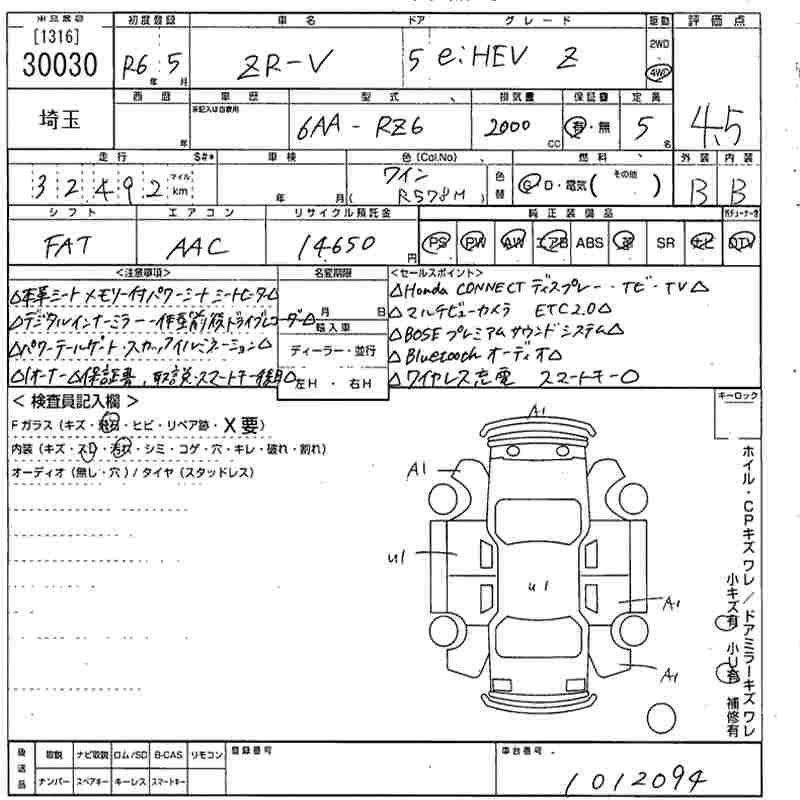 [1316]
30030
初度登録 車名 ドア グレード 駆動 評価点
R6年 5月 ZR-V 5 e:HEV Z 2WD 4WD
埼玉
西暦 車歴 型式 排気量 保証書 定員
年 未記入は自家用 6AA-RZ6 2000cc 有・無 5名 4.5
走行 S#* 車検 色(Col.No) 燃料 外装 内装
32492 マイル km 年 月 ワイン (R578M) 色替 G D・電気(その他) B B
シフト エアコン リサイクル預託金 純正装備品
FAT AAC 14650円 PS PW AW エアB ABS 革 SR ナビ DTV
<注意事項> 名変期限 <セールスポイント>
△本革シート メモリー付パワーシート シートヒーター△ △Honda CONNECT ディスプレー・ナビ・TV△
△デジタルインナーミラー 前後ドライブレコーダー△ 月 日 △マルチビューカメラ ETC2.0△
輸入車 △BOSEプレミアムサウンドシステム△
△パワーテールゲート・ ディーラー・並行 △Bluetoothオーディオ△
△1オーナー△保証書、取説・スマートキー後日△ 左H・右H △ワイヤレス充電 スマートキー〇
<検査員記入欄> キーロック
Fガラス(キズ・飛石・ヒビ・リペア跡・X要)
内装(キズ・スレ・汚れ・シミ・コゲ・穴・キレ・破れ・割れ)
オーディオ(無し・穴)/タイヤ(スタッドレス)
A1
A1
U1
U1
A1
A1
ホイル・CPキズワレ/ドアミラーキズワレ
小キズ有 小U有 補修有
後送品 取説 ナビ取説 ロム/SD B-CAS リモコン 登録番号 車台番号
ナンバー スペアキー キーレス スマートキー 1012094